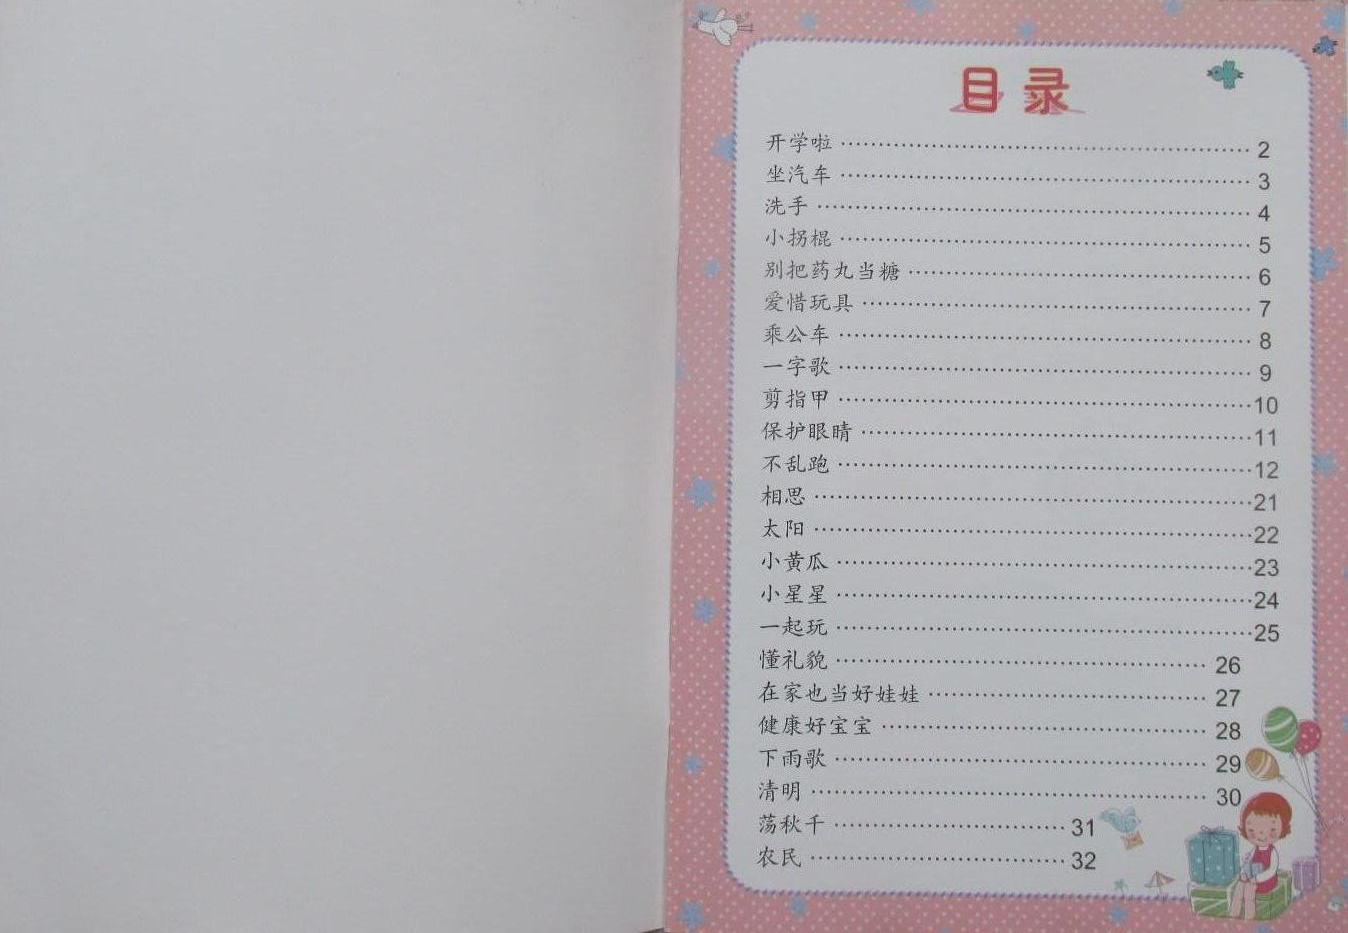 目录
开学啦 2
坐汽车 3
洗手 4
小拐棍 5
别把药丸当糖 6
爱惜玩具 7
乘公车 8
一字歌 9
剪指甲 10
保护眼睛 11
不乱跑 12
相思 21
太阳 22
小黄瓜 23
小星星 24
一起玩 25
懂礼貌 26
在家也当好娃娃 27
健康好宝宝 28
下雨歌 29
清明 30
荡秋千 31
农民 32